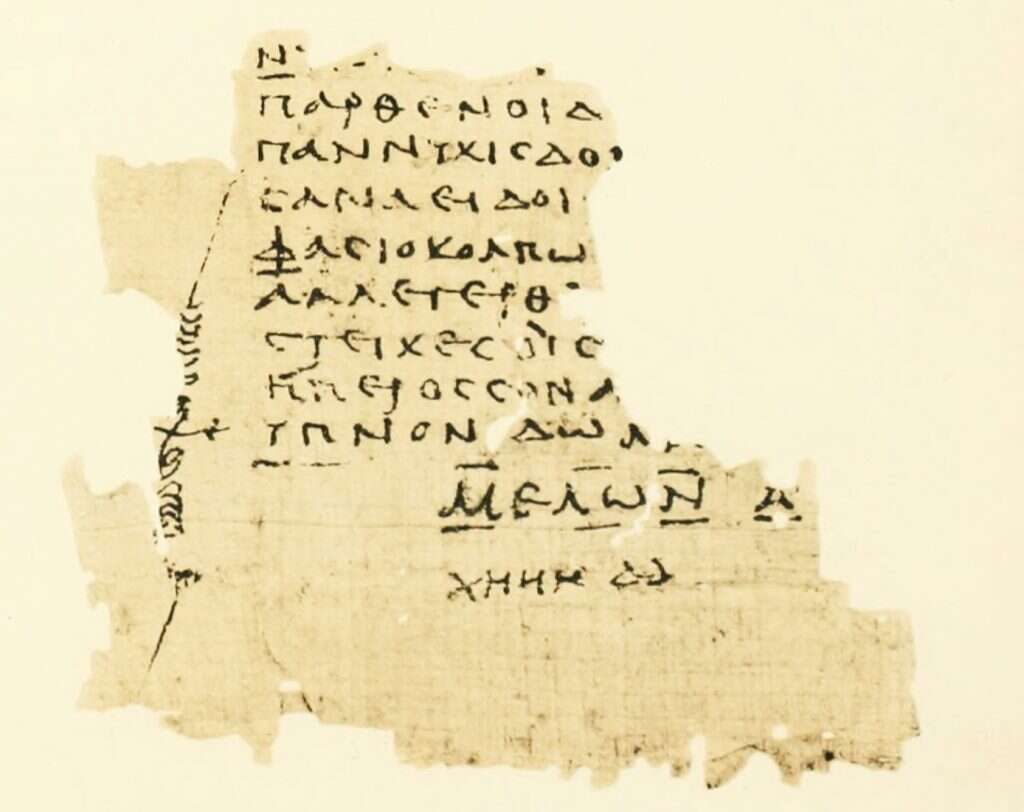 Ν
ΠΑΡΘΕΝΟΙΔ
ΠΑΝΝΥΧΙϹΔΟ
ϹΑΝΑΕΙΔΟΙ
ΦΑϹΙΟΚΟΛΠΩ
ΑΛΛΕΓΕΡΘ
ϹΤΕΙΧΕϹΟΙϹ
ΗΠΕΡΟϹϹΟΝΑ
ΥΠΝΟΝ ΔΩΜ
ΜΕΛΩΝ Α
ΧΗΗΗΔΔ